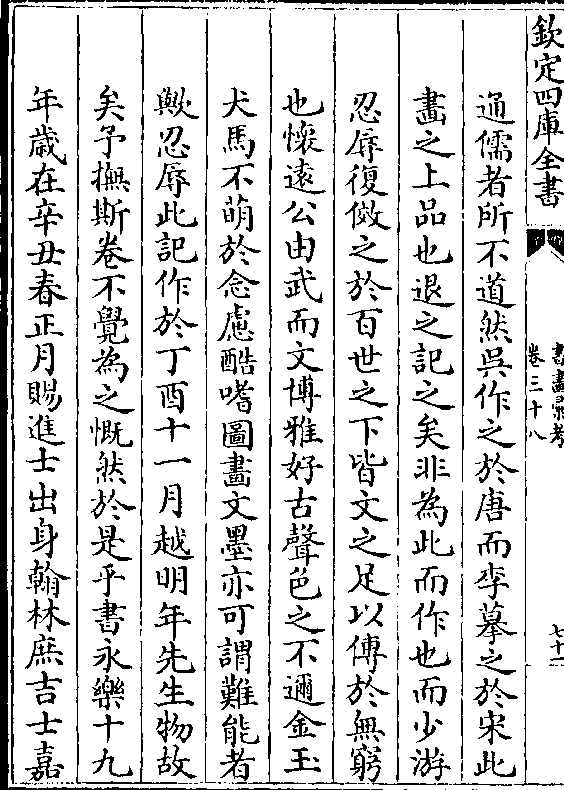 欽定四庫全書
書畫彚考
卷三十八
七十一
通儒者所不道然吳作之於唐而李摹之於宋此
畫之上品也退之記之矣非為此而作也而少游
忍辱復倣之於百世之下皆文之足以傳於無窮
也懷遠公由武而文博雅好古聲色之不邇金玉
犬馬不萌於念慮酷嗜圖畫文墨亦可謂難能者
歟忍辱此記作於丁酉十一月越明年先生物故
矣予撫斯卷不覺為之慨然於是乎書永樂十九
年歲在辛丑春正月賜進士出身翰林庶吉士嘉